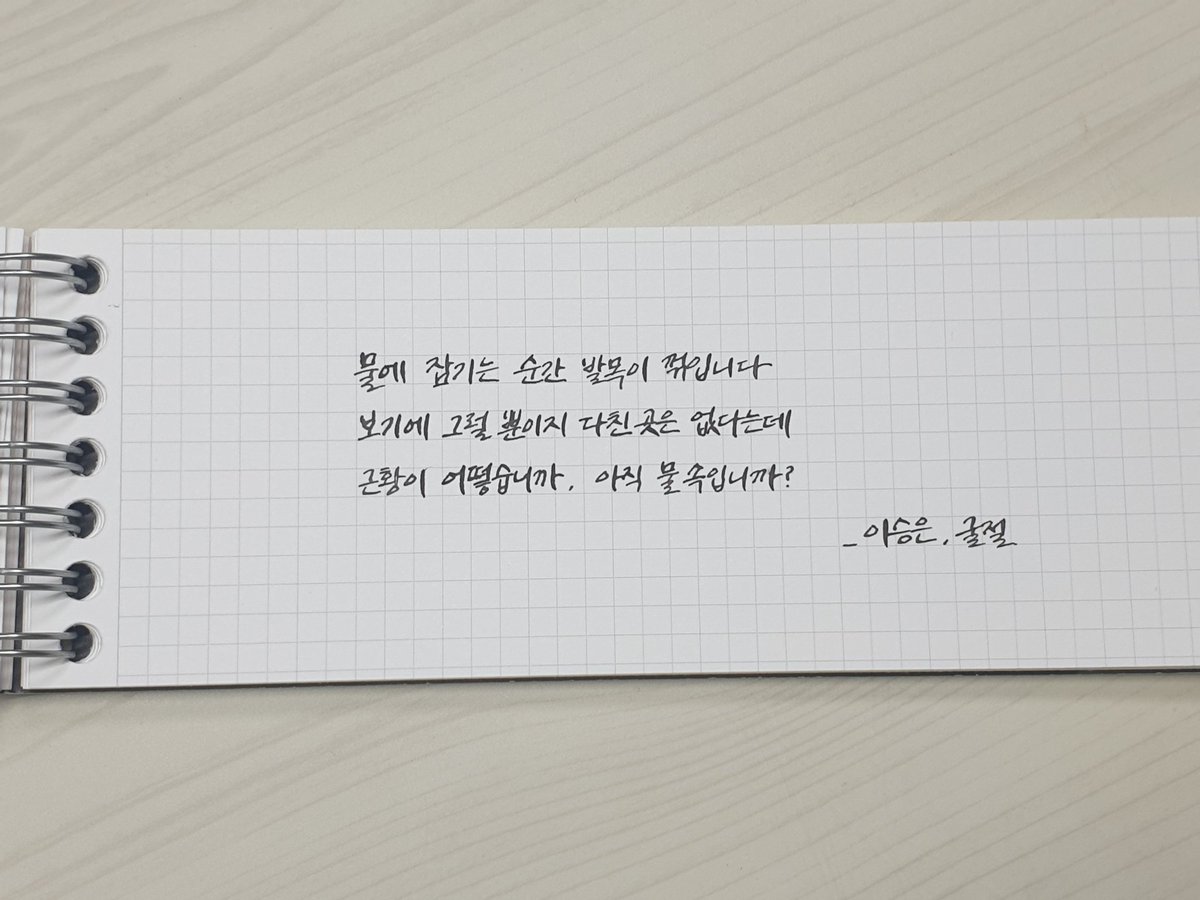 물에 잠기는 순간 발목이 꺾입니다
보기에 그럴 뿐이지 다친 곳은 없다는데
근황이 어떻습니까. 아직 물 속입니까?
_ 이승은, 굴절